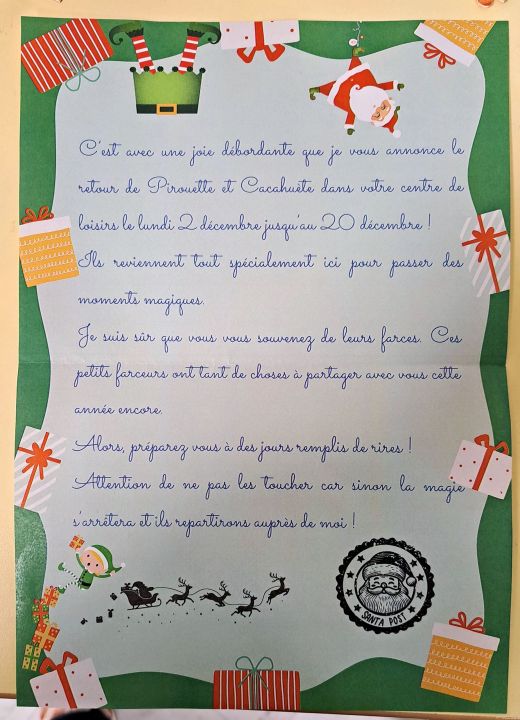 C'est avec une joie débordante que je vous annonce le
retour de Pirouette et Cacahuète dans votre centre de
loisirs le lundi 2 décembre jusqu'au 20 décembre !
Ils reviennent tout spécialement ici pour passer des
moments magiques.
Je suis sûr que vous vous souvenez de leurs farces. Ces
petits farceurs ont tant de choses à partager avec vous cette
année encore.
Alors, préparez vous à des jours remplis de rires !
Attention de ne pas les toucher car sinon la magie
s'arrêtera et ils repartirons auprès de moi !
SANTA POST